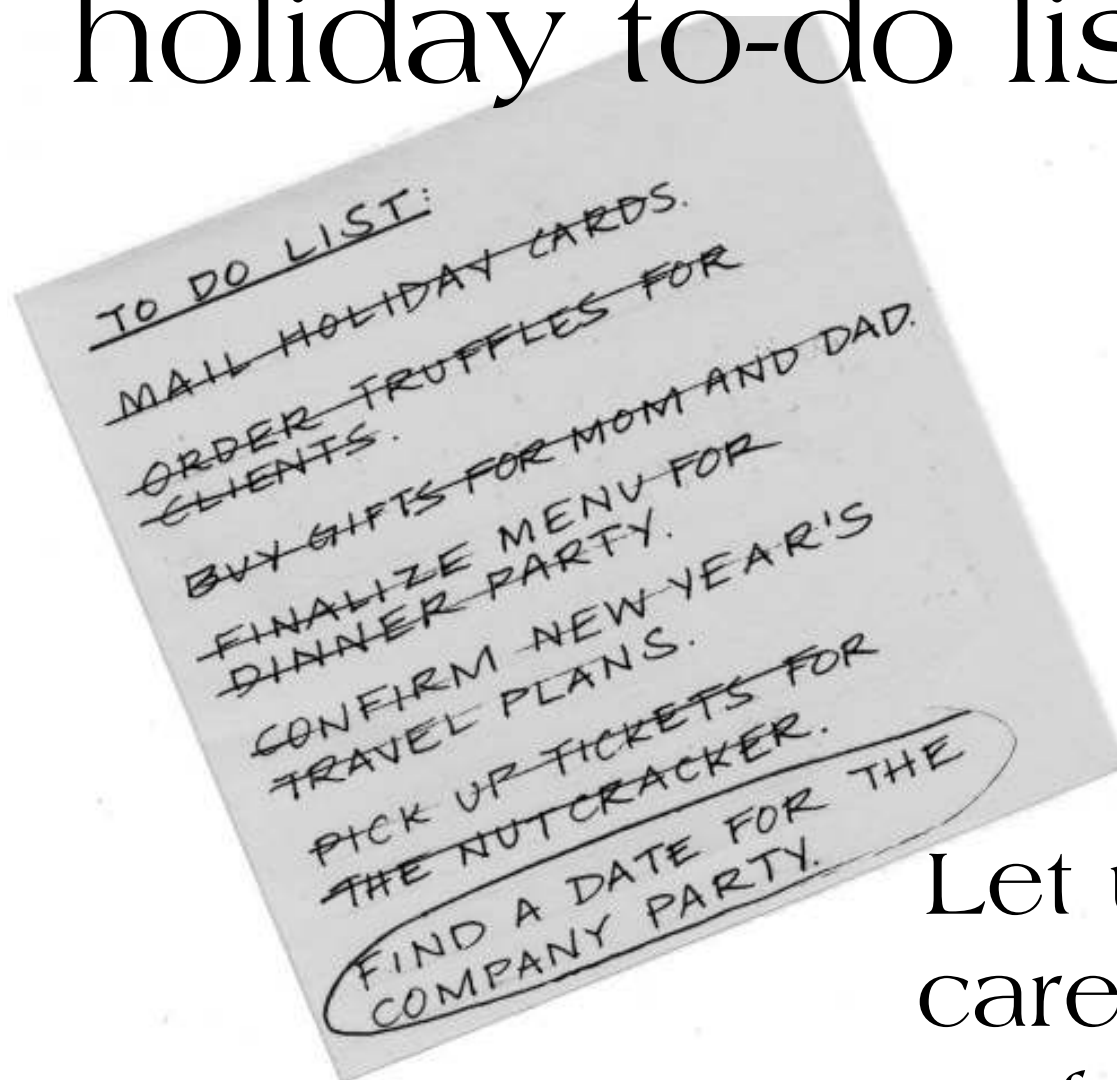 holiday to-do lis
TO DO LIST:
MAIL HOLIDAY CARDS.
ORDER TRUFFLES FOR
CLIENTS.
BUY GIFTS FOR MOM AND DAD.
FINALIZE MENU FOR
DINNER PARTY.
CONFIRM NEW YEAR'S
TRAVEL PLANS.
PICK UP TICKETS FOR
THE NUTCRACKER.
FIND A DATE FOR THE
COMPANY PARTY.
Let
care